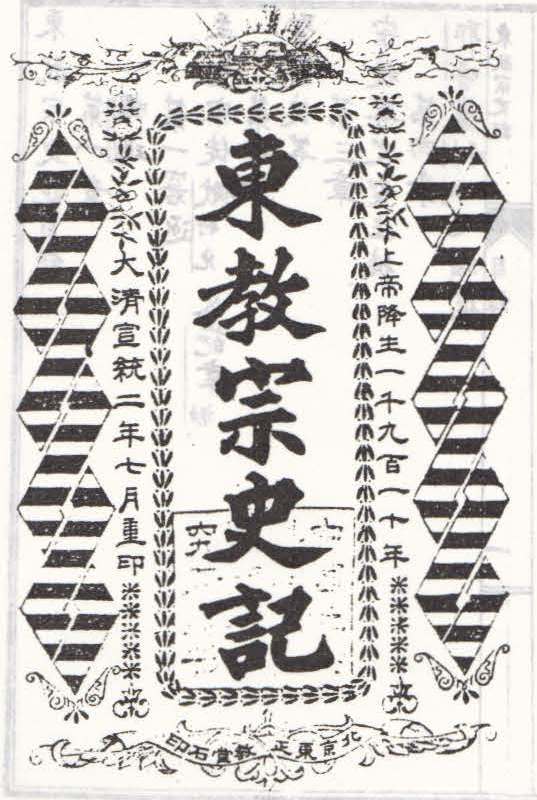 上帝降生一千九百一十年
東教宗史記
大清宣統二年七月重印
北京東正教堂石印